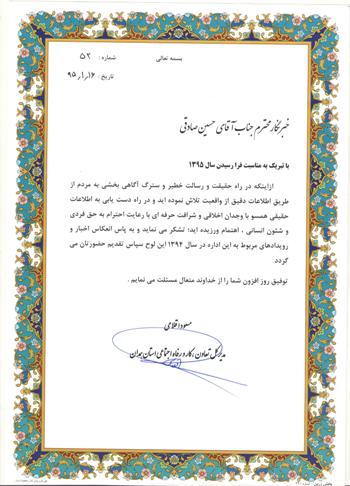 بسمه تعالی
شماره : ۵۲
تاریخ : ۹۵,۱,۱۶
خبرنگار محترم جناب آقای حسین صادقی
با تبریک به مناسبت فرا رسیدن سال ۱۳۹۵
ازاینکه در راه حقیقت و رسالت خطیر و سترگ آگاهی بخشی به مردم از
طریق اطلاعات دقیق از واقعیت تلاش نموده اید و در راه دست یابی به اطلاعات
حقیقی همسو با وجدان اخلاقی و شرافت حرفه ای با رعایت احترام به حق فردی
و شئون انسانی ، اهتمام ورزیده اید؛ تشکر می نماید و به پاس انعکاس اخبار و
رویدادهای مربوط به این اداره در سال ۱۳۹۴ این لوح سپاس تقدیم حضورتان می
گردد.
توفیق روز افزون شما را از خداوند متعال مسئلت می نمایم .
مدیرکل تعاون ، کار و رفاه اجتماعی استان همدان